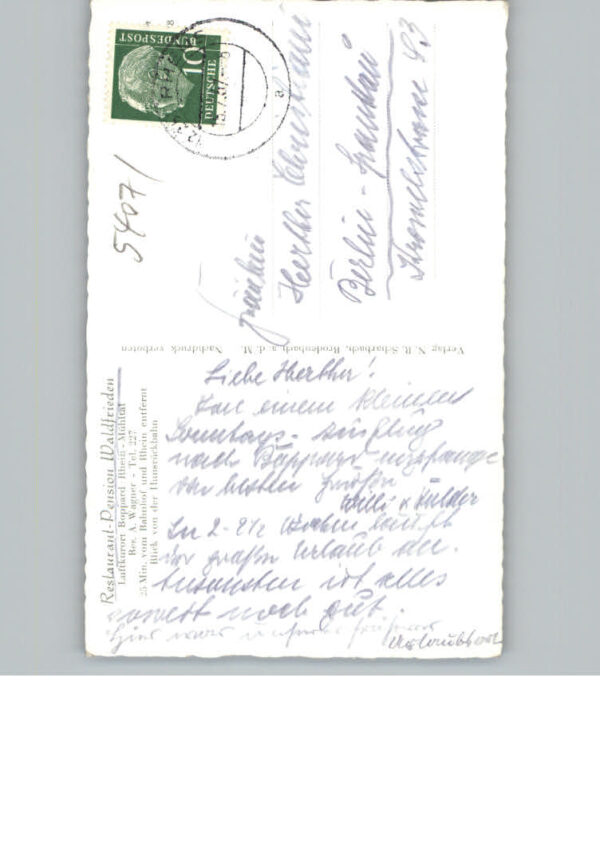 Restaurant-Pension Waldfrieden
Luftkurort Boppard Rhein-Mühltal
Bes. A. Wagner - Tel. 227
25 Min. vom Bahnhof und Rhein entfernt
Blick von der Hunsrückbahn
Liebe Herther!
Von einem kleinen
Sonntags-Ausflug
nach Boppard
die besten Grüße
Willi &
In 2-2½ Wochen läuft
der große Urlaub
Ansonsten ist alles
soweit noch gut.
Hier war unser früherer
Verlag N. R. Scharbach, Brodenbach a. d. M. Nachdruck verboten
5407/
DEUTSCHE
BUNDESPOST
10
a
Fräulein
Herther
Berlin-Spandau